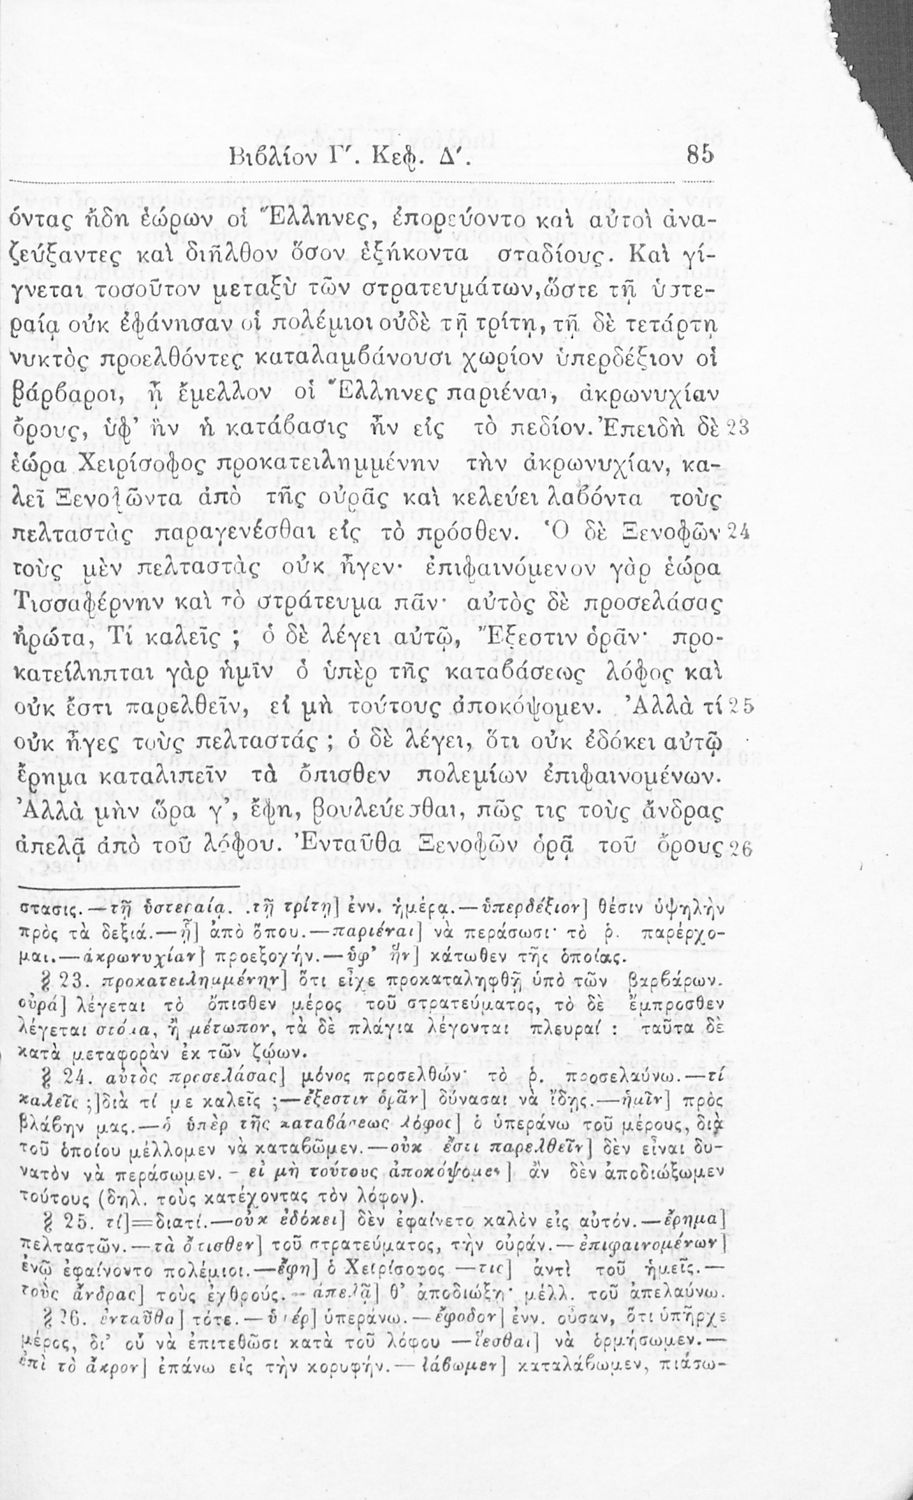 Βιβλίον Γ′. Κεφ. Δ′. 85
όντας ἤδη ἑώρων οἱ Ἕλληνες, ἐπορεύοντο καὶ αὐτοὶ ἀνα-
ζεύξαντες καὶ διῆλθον ὅσον ἑξήκοντα σταδίους. Καὶ γί-
γνεται τοσοῦτον μεταξὺ τῶν στρατευμάτων, ὥστε τῇ ὑστε-
ραίᾳ οὐκ ἐφάνησαν οἱ πολέμιοι οὐδὲ τῇ τρίτῃ, τῇ δὲ τετάρτῃ
νυκτὸς προελθόντες καταλαμβάνουσι χωρίον ὑπερδέξιον οἱ
βάρβαροι, ᾗ ἔμελλον οἱ Ἕλληνες παριέναι, ἀκρωνυχίαν
ὄρους, ὑφ' ἣν ἡ κατάβασις ἦν εἰς τὸ πεδίον. Ἐπειδὴ δὲ 23
ἑώρα Χειρίσοφος προκατειλημμένην τὴν ἀκρωνυχίαν, κα-
λεῖ Ξενοφῶντα ἀπὸ τῆς οὐρᾶς καὶ κελεύει λαβόντα τοὺς
πελταστὰς παραγενέσθαι εἰς τὸ πρόσθεν. Ὁ δὲ Ξενοφῶν 24
τοὺς μὲν πελταστὰς οὐκ ἦγεν· ἐπιφαινόμενον γὰρ ἑώρα
Τισσαφέρνην καὶ τὸ στράτευμα πᾶν· αὐτὸς δὲ προσελάσας
ἠρώτα, Τί καλεῖς ; ὁ δὲ λέγει αὐτῷ, Ἔξεστιν ὁρᾶν· προ-
κατείληπται γὰρ ἡμῖν ὁ ὑπὲρ τῆς καταβάσεως λόφος καὶ
οὐκ ἔστι παρελθεῖν, εἰ μὴ τούτους ἀποκόψομεν. Ἀλλὰ τί 25
οὐκ ἦγες τοὺς πελταστάς ; ὁ δὲ λέγει, ὅτι οὐκ ἐδόκει αὐτῷ
ἔρημα καταλιπεῖν τὰ ὄπισθεν πολεμίων ἐπιφαινομένων.
Ἀλλὰ μὴν ὥρα γ', ἔφη, βουλεύεσθαι, πῶς τις τοὺς ἄνδρας
ἀπελᾷ ἀπὸ τοῦ λόφου. Ἐνταῦθα Ξενοφῶν ὁρᾷ τοῦ ὄρους 26
στασις.—τῇ ὑστεραίᾳ. .τῇ τρίτῃ] ἐνν. ἡμέρᾳ.—ὑπερδέξιον] θέσιν ὑψηλὴν
πρὸς τὰ δεξιά.—ᾗ] ἀπὸ ὅπου.—παριέναι] νὰ περάσωσι· τὸ ῥ. παρέρχο-
μαι.—ἀκρωνυχίαν] προεξοχήν.—ὑφ' ἣν] κάτωθεν τῆς ὁποίας.
§ 23. προκατειλημμένην] ὅτι εἶχε προκαταληφθῆ ὑπὸ τῶν βαρβάρων.
οὐρά] λέγεται τὸ ὄπισθεν μέρος τοῦ στρατεύματος, τὸ δὲ ἔμπροσθεν
λέγεται στόμα, ἢ μέτωπον, τὰ δὲ πλάγια λέγονται πλευραί : ταῦτα δὲ
κατὰ μεταφορὰν ἐκ τῶν ζῴων.
§ 24. αὐτὸς προσελάσας] μόνος προσελθών· τὸ ῥ. προσελαύνω.—τί
καλεῖς ;]διὰ τί με καλεῖς ;—ἔξεστιν ὁρᾶν] δύνασαι νὰ ἴδῃς.—ἡμῖν] πρὸς
βλάβην μας.—ὁ ὑπὲρ τῆς καταβάσεως λόφος] ὁ ὑπεράνω τοῦ μέρους, διὰ
τοῦ ὁποίου μέλλομεν νὰ καταβῶμεν.—οὐκ ἔστι παρελθεῖν] δὲν εἶναι δυ-
νατὸν νὰ περάσωμεν. - εἰ μὴ τούτους ἀποκόψομεν] ἂν δὲν ἀποδιώξωμεν
τούτους (δηλ. τοὺς κατέχοντας τὸν λόφον).
§ 25. τί]=διατί.—οὐκ ἐδόκει] δὲν ἐφαίνετο καλὸν εἰς αὐτόν.—ἔρημα]
πελταστῶν.—τὰ ὄπισθεν] τοῦ στρατεύματος, τὴν οὐράν.—ἐπιφαινομένων]
ἐνῷ ἐφαίνοντο πολέμιοι.—ἔφη] ὁ Χειρίσοφος —τις] ἀντὶ τοῦ ἡμεῖς.—
τοὺς ἄνδρας] τοὺς ἐχθρούς.—ἀπελᾷ] θ' ἀποδιώξῃ· μέλλ. τοῦ ἀπελαύνω.
§ 26. ἐνταῦθα] τότε.—ὑπὲρ] ὑπεράνω.—ἔφοδον] ἐνν. οὖσαν, ὅτι ὑπῆρχε
μέρος, δι' οὗ νὰ ἐπιτεθῶσι κατὰ τοῦ λόφου —ἵεσθαι] νὰ ὁρμήσωμεν.—
ἐπὶ τὸ ἄκρον] ἐπάνω εἰς τὴν κορυφήν.—λάβωμεν] καταλάβωμεν, πιάσω-